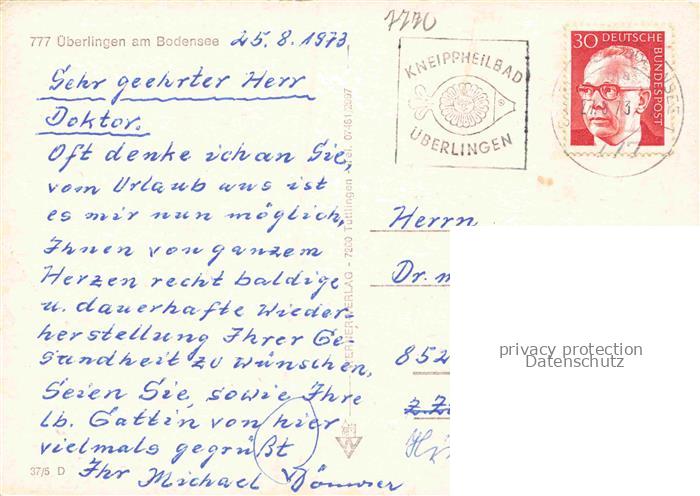 7770
777 Überlingen am Bodensee 25.8.1973
Sehr geehrter Herr
Doktor.
Oft denke ich an Sie,
vom Urlaub aus ist
es mir nun möglich,
Ihnen von ganzem
Herzen recht baldige
u. dauerhafte Wieder
herstellung Ihrer Ge
sundheit zu wünschen,
Seien Sie, sowie Ihre
lb. Gattin von hier
vielmals gegrüßt
Ihr Michael
37/5 D
VERLAG - 7200 Tuttlingen
KNEIPPHEILBAD
ÜBERLINGEN
30 DEUTSCHE
BUNDESPOST
Herrn
Dr. m
852
privacy protection
Datenschutz